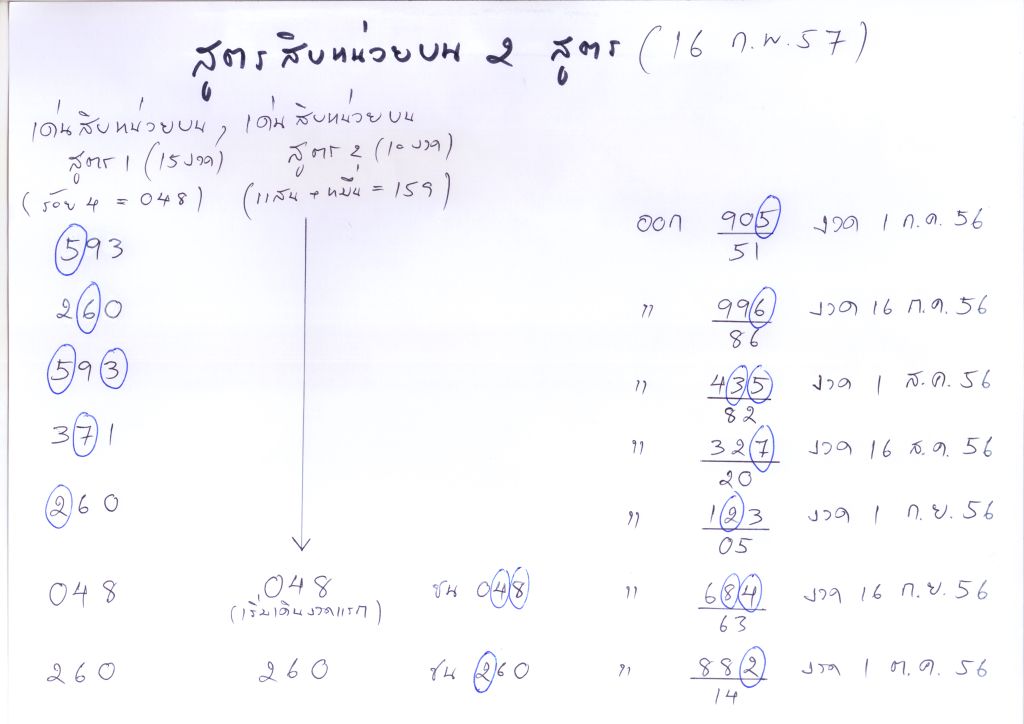 สูตรสิบหน่วยบน 2 สูตร (16 ก.พ.57)
เด่นสิบหน่วยบน, เด่นสิบหน่วยบน
สูตร 1 (15งวด) สูตร 2 (10งวด)
(ร้อย 4 = 048) (แสน + หมื่น = 159)
593 ออก 905 งวด 1 ก.ค. 56
51
260 " 996 งวด 16 ก.ค. 56
86
593 " 435 งวด 1 ส.ค. 56
82
371 " 327 งวด 16 ส.ค. 56
20
260 " 123 งวด 1 ก.ย. 56
05
048 048 ชน 048 " 684 งวด 16 ก.ย. 56
(เริ่มเดินงวดแรก) 63
260 260 ชน 260 " 882 งวด 1 ต.ค. 56
14